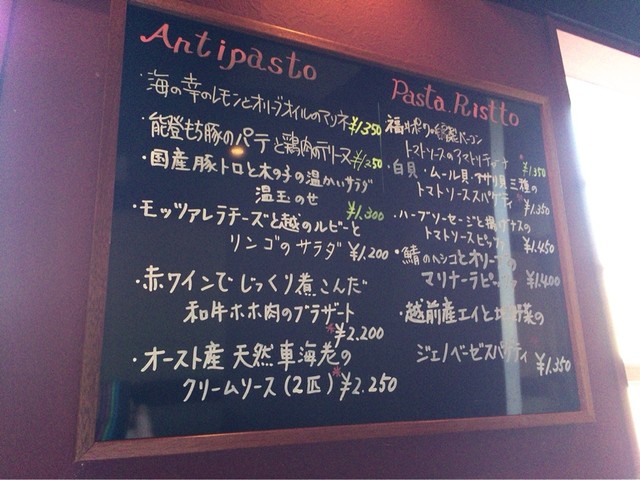 Antipasto
・海の幸のレモンとオリーブオイルのマリネ ¥1350
・能登もち豚のパテと鶏肉のテリーヌ ¥1250
・国産豚トロと木の子の温かいサラダ
温玉のせ ¥1.300
・モッツァレラチーズと越のルビーと
リンゴのサラダ ¥1.200
・赤ワインでじっくり煮こんだ
和牛ホホ肉のブラザート
¥2.200
・オースト産 天然車海老の
クリームソース(2匹) ¥2.250
Pasta. Ristto
福井ポークの ベーコン
トマトソースのアマトリチャーナ ¥1.350
・白貝・ムール貝・アサリ貝三種の
トマトソーススパゲティ ¥1.350
・ハーブソーセージと揚げナスの
トマトソースピッツァ ¥1.450
・鯖のヘシコとオリーブの
マリナーラピッツァ ¥1.400
・越前産エイと 野菜の
ジェノベーゼスパゲティ ¥1.350